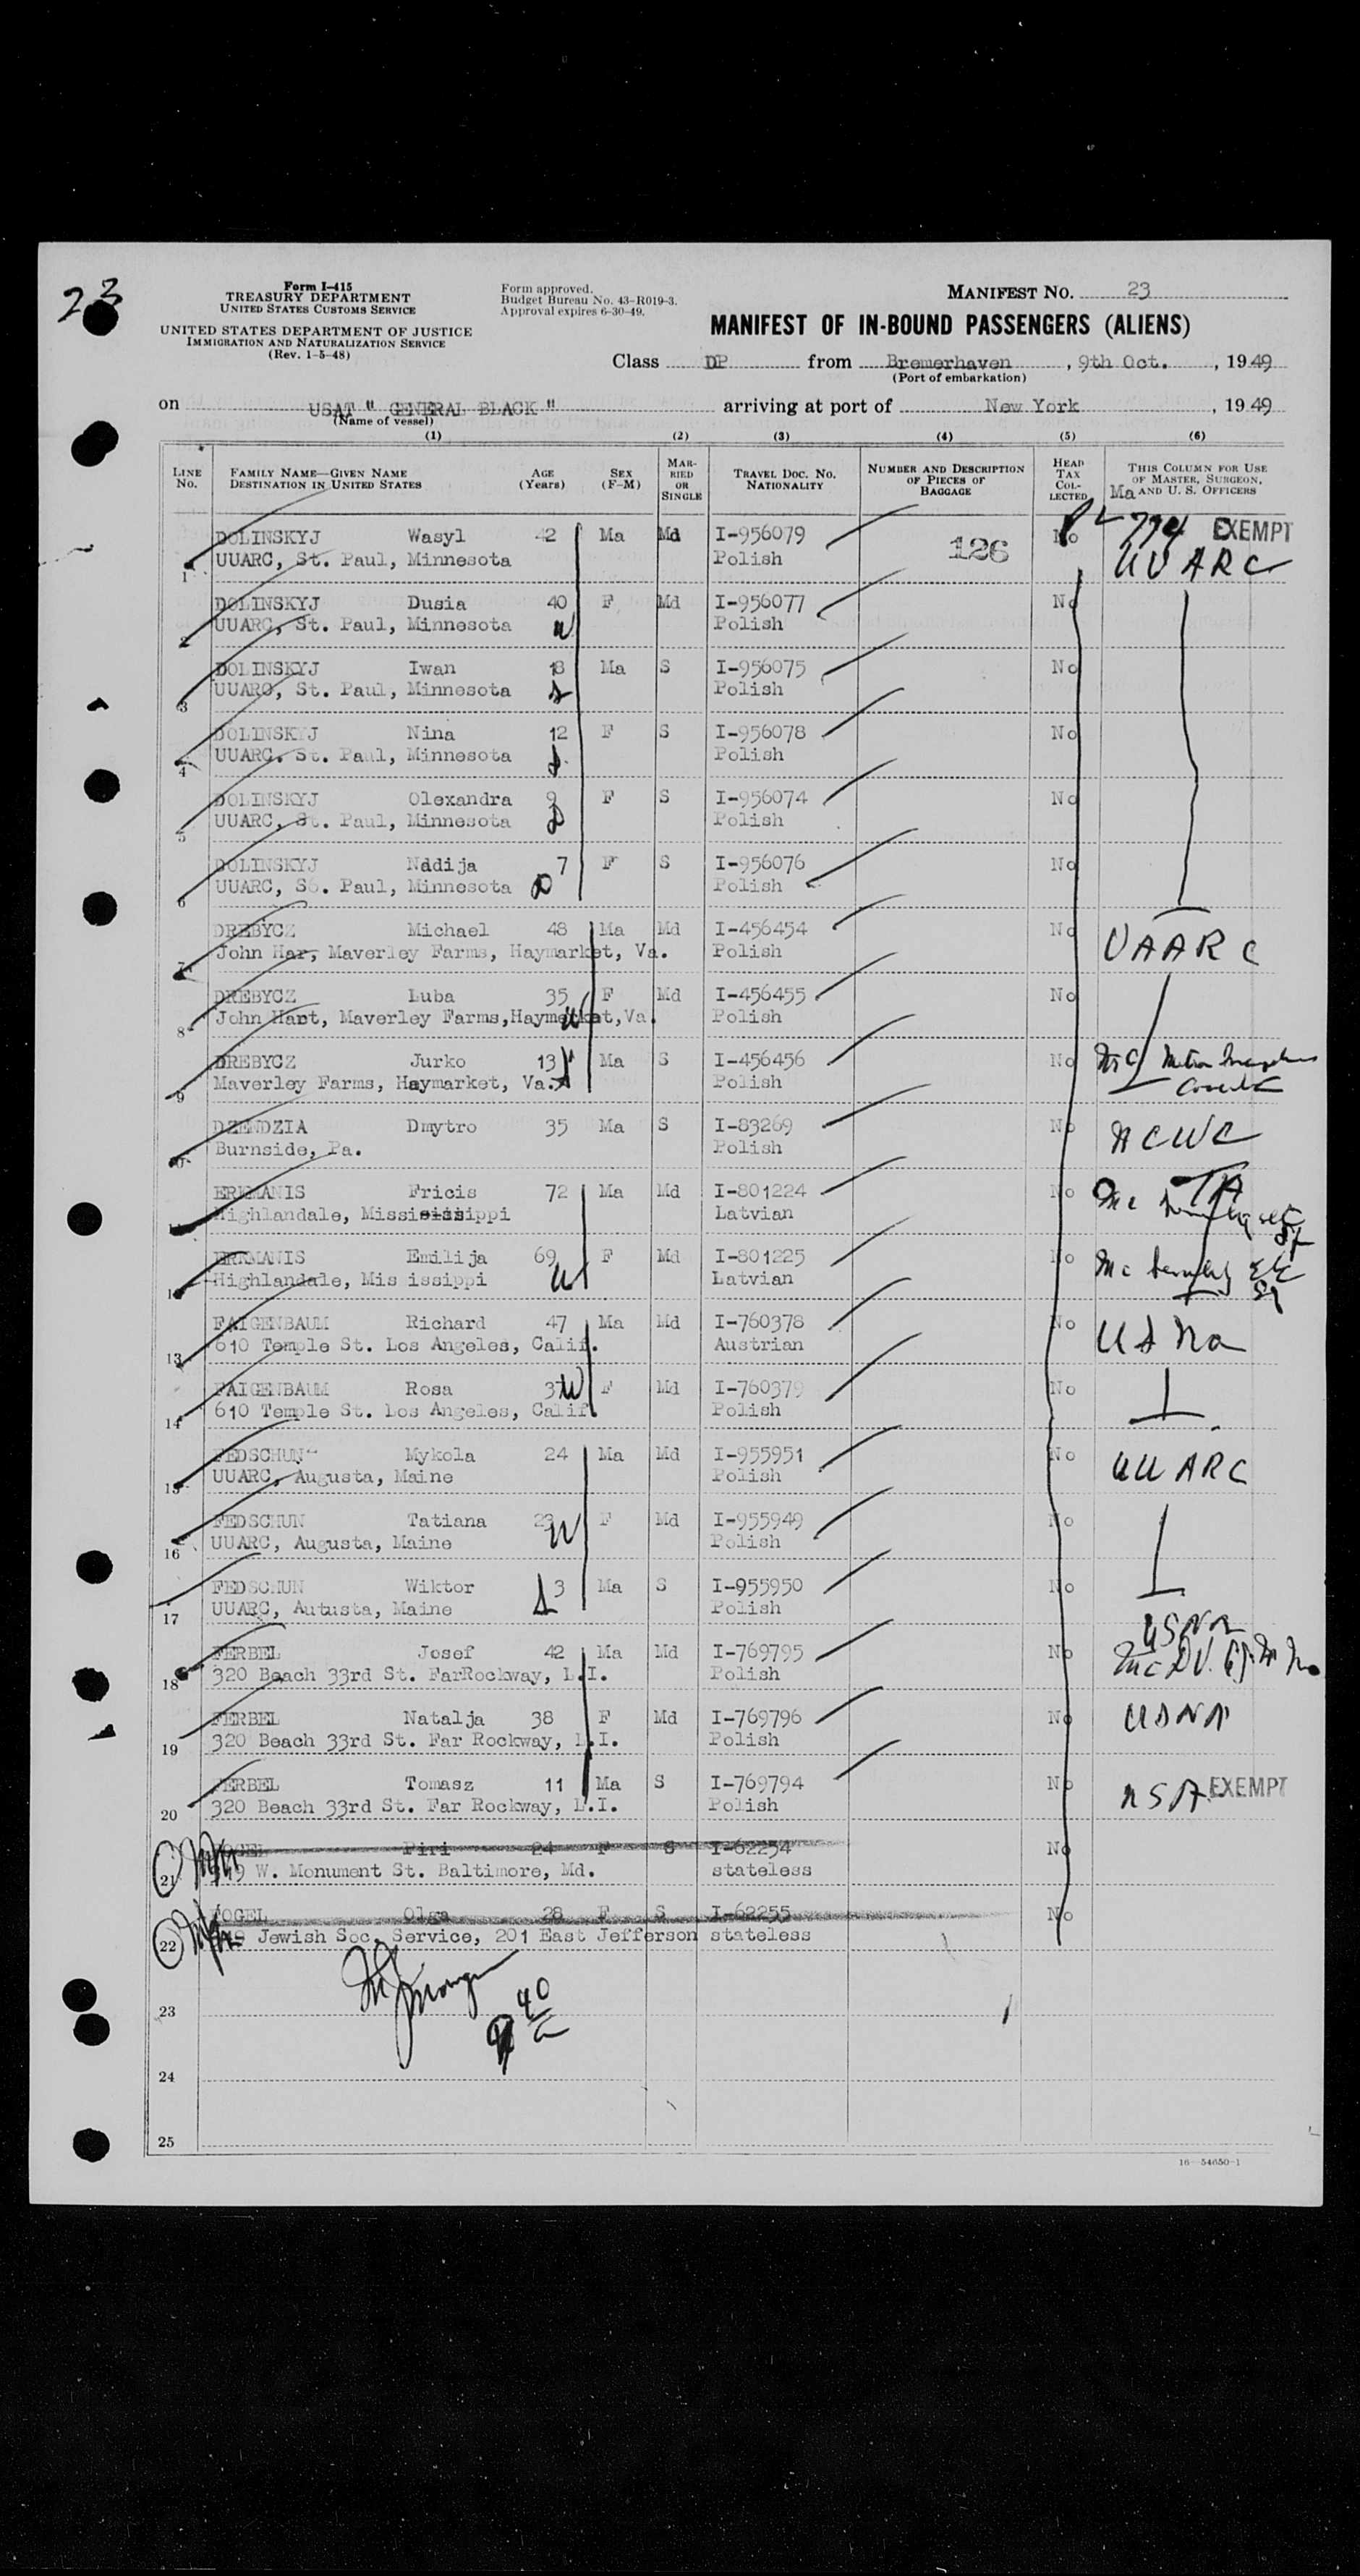 23
Form I-415
TREASURY DEPARTMENT
UNITED STATES CUSTOMS SERVICE
UNITED STATES DEPARTMENT OF JUSTICE
IMMIGRATION AND NATURALIZATION SERVICE
(Rev. 1-5-48)
Form approved.
Budget Bureau No. 43-R019-3.
Approval expires 6-30-49.
MANIFEST NO. 23
MANIFEST OF IN-BOUND PASSENGERS (ALIENS)
Class DP from Bremerhaven, 9th Oct., 1949
(Port of embarkation)
on USAT " GENERAL BLACK " arriving at port of New York, 1949
(Name of vessel)
(1) (2) (3) (4) (5) (6)
LINE No. FAMILY NAME—GIVEN NAME DESTINATION IN UNITED STATES AGE (Years) SEX (F-M) MARRIED OR SINGLE TRAVEL DOC. NO. NATIONALITY NUMBER AND DESCRIPTION OF PIECES OF BAGGAGE HEAD TAX COLLECTED THIS COLUMN FOR USE OF MASTER, SURGEON, AND U. S. OFFICERS
Ma
1 DOLINSKYJ Wasyl 42 Ma Md I-956079 126 No 774 EXEMPT
UUARC, St. Paul, Minnesota Polish UUARC
2 DOLINSKYJ Dusia 40 F Md I-956077 No
UUARC, St. Paul, Minnesota W Polish
3 DOLINSKYJ Iwan 18 Ma S I-956075 No
UUARC, St. Paul, Minnesota Polish
4 DOLINSKYJ Nina 12 F S I-956078 No
UUARC. St. Paul, Minnesota Polish
5 DOLINSKYJ Olexandra 9 F S I-956074 No
UUARC, St. Paul, Minnesota Polish
6 DOLINSKYJ Nadija 7 F S I-956076 No
UUARC, St. Paul, Minnesota Polish
7 DREBYCZ Michael 48 Ma Md I-456454 No UAARC
John Har, Maverley Farms, Haymarket, Va. Polish
8 DREBYCZ Luba 35 F Md I-456455 No
John Hart, Maverley Farms,Haymarket,Va. Polish
9 DREBYCZ Jurko 13 Ma S I-456456 No
Maverley Farms, Haymarket, Va. Polish
10 DZENDZIA Dmytro 35 Ma S I-83269 No NCWC
Burnside, Pa. Polish
11 ERKMANIS Fricis 72 Ma Md I-801224 No
Highlandale, Missisissippi Latvian
12 ERKMANIS Emilija 69 F Md I-801225 No
Highlandale, Mis issippi W Latvian
13 FAIGENBAUM Richard 47 Ma Md I-760378 No USNa
610 Temple St. Los Angeles, Calif. Austrian
14 FAIGENBAUM Rosa 37 W F Md I-760379 No
610 Temple St. Los Angeles, Calif. Polish
15 FEDSCHUN Mykola 24 Ma Md I-955951 No UUARC
UUARC, Augusta, Maine Polish
16 FEDSCHUN Tatiana 23 F Md I-955949 No
UUARC, Augusta, Maine W Polish
17 FEDSCHUN Wiktor 3 Ma S I-955950 No
UUARC, Autusta, Maine Polish
18 FERBEL Josef 42 Ma Md I-769795 No USNA
320 Beach 33rd St. FarRockway, L.I. Polish
19 FERBEL Natalja 38 F Md I-769796 No USNA
320 Beach 33rd St. Far Rockway, L.I. Polish
20 FERBEL Tomasz 11 Ma S I-769794 No EXEMPT
320 Beach 33rd St. Far Rockway, L.I. Polish
21 FOGEL Piri 24 F S I-62254 No
W. Monument St. Baltimore, Md. stateless
22 FOGEL Olga 28 F S I-62255 No
Jewish Soc. Service, 201 East Jefferson stateless
23
24
25
16—54650-1